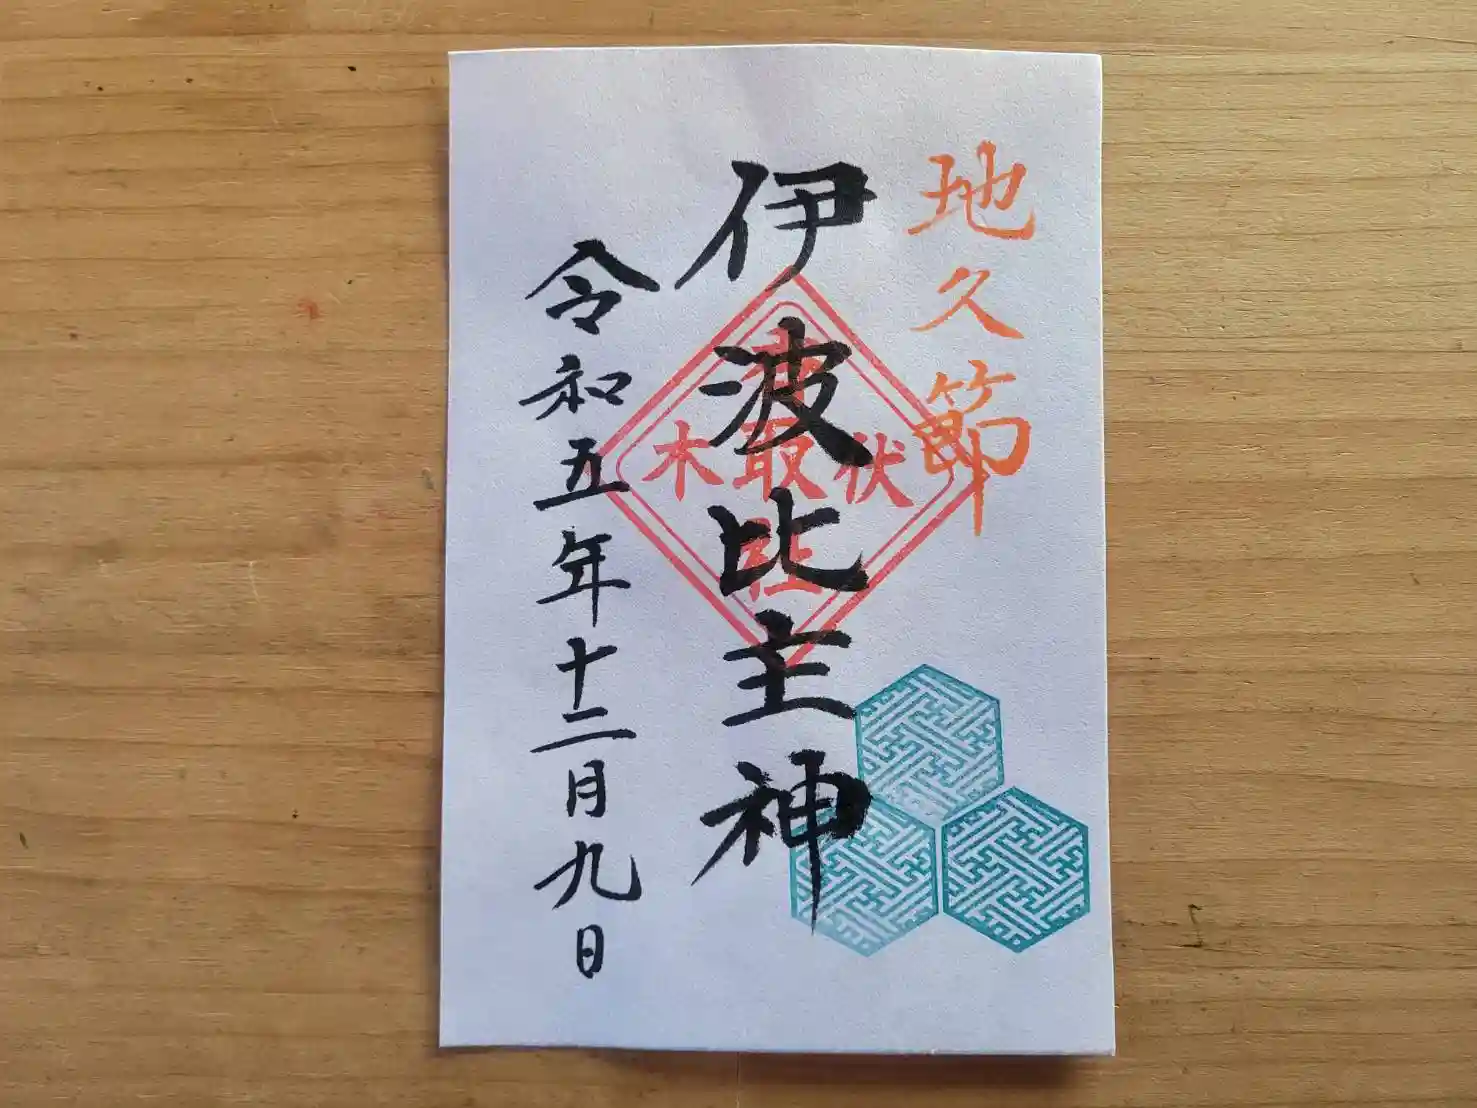 地久節
伊波比主神
木取伏
令和五年十二月九日